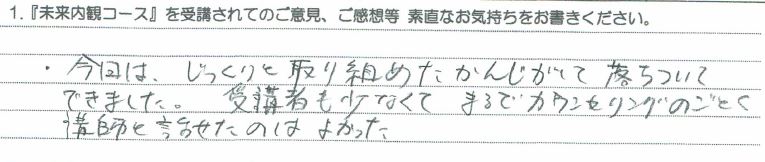 1.『未来内観コース』を受講されてのご意見、ご感想等 素直なお気持ちをお書きください。
・今回は、じっくりと取り組めたかんじがして 落ちついて
できました。 受講者も少なくて まるでカウンセリングのごとく
講師と話せたのは よかった